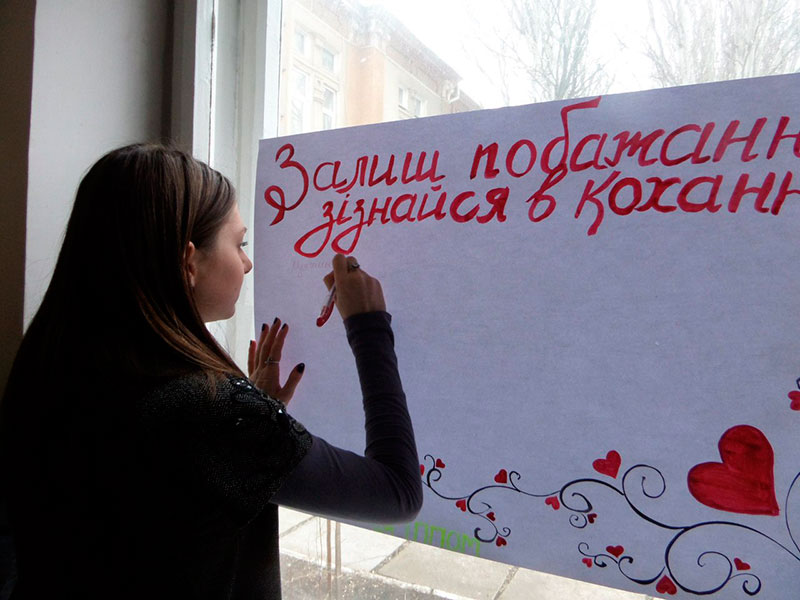 Залиш побажанн
зізнайся в коханн